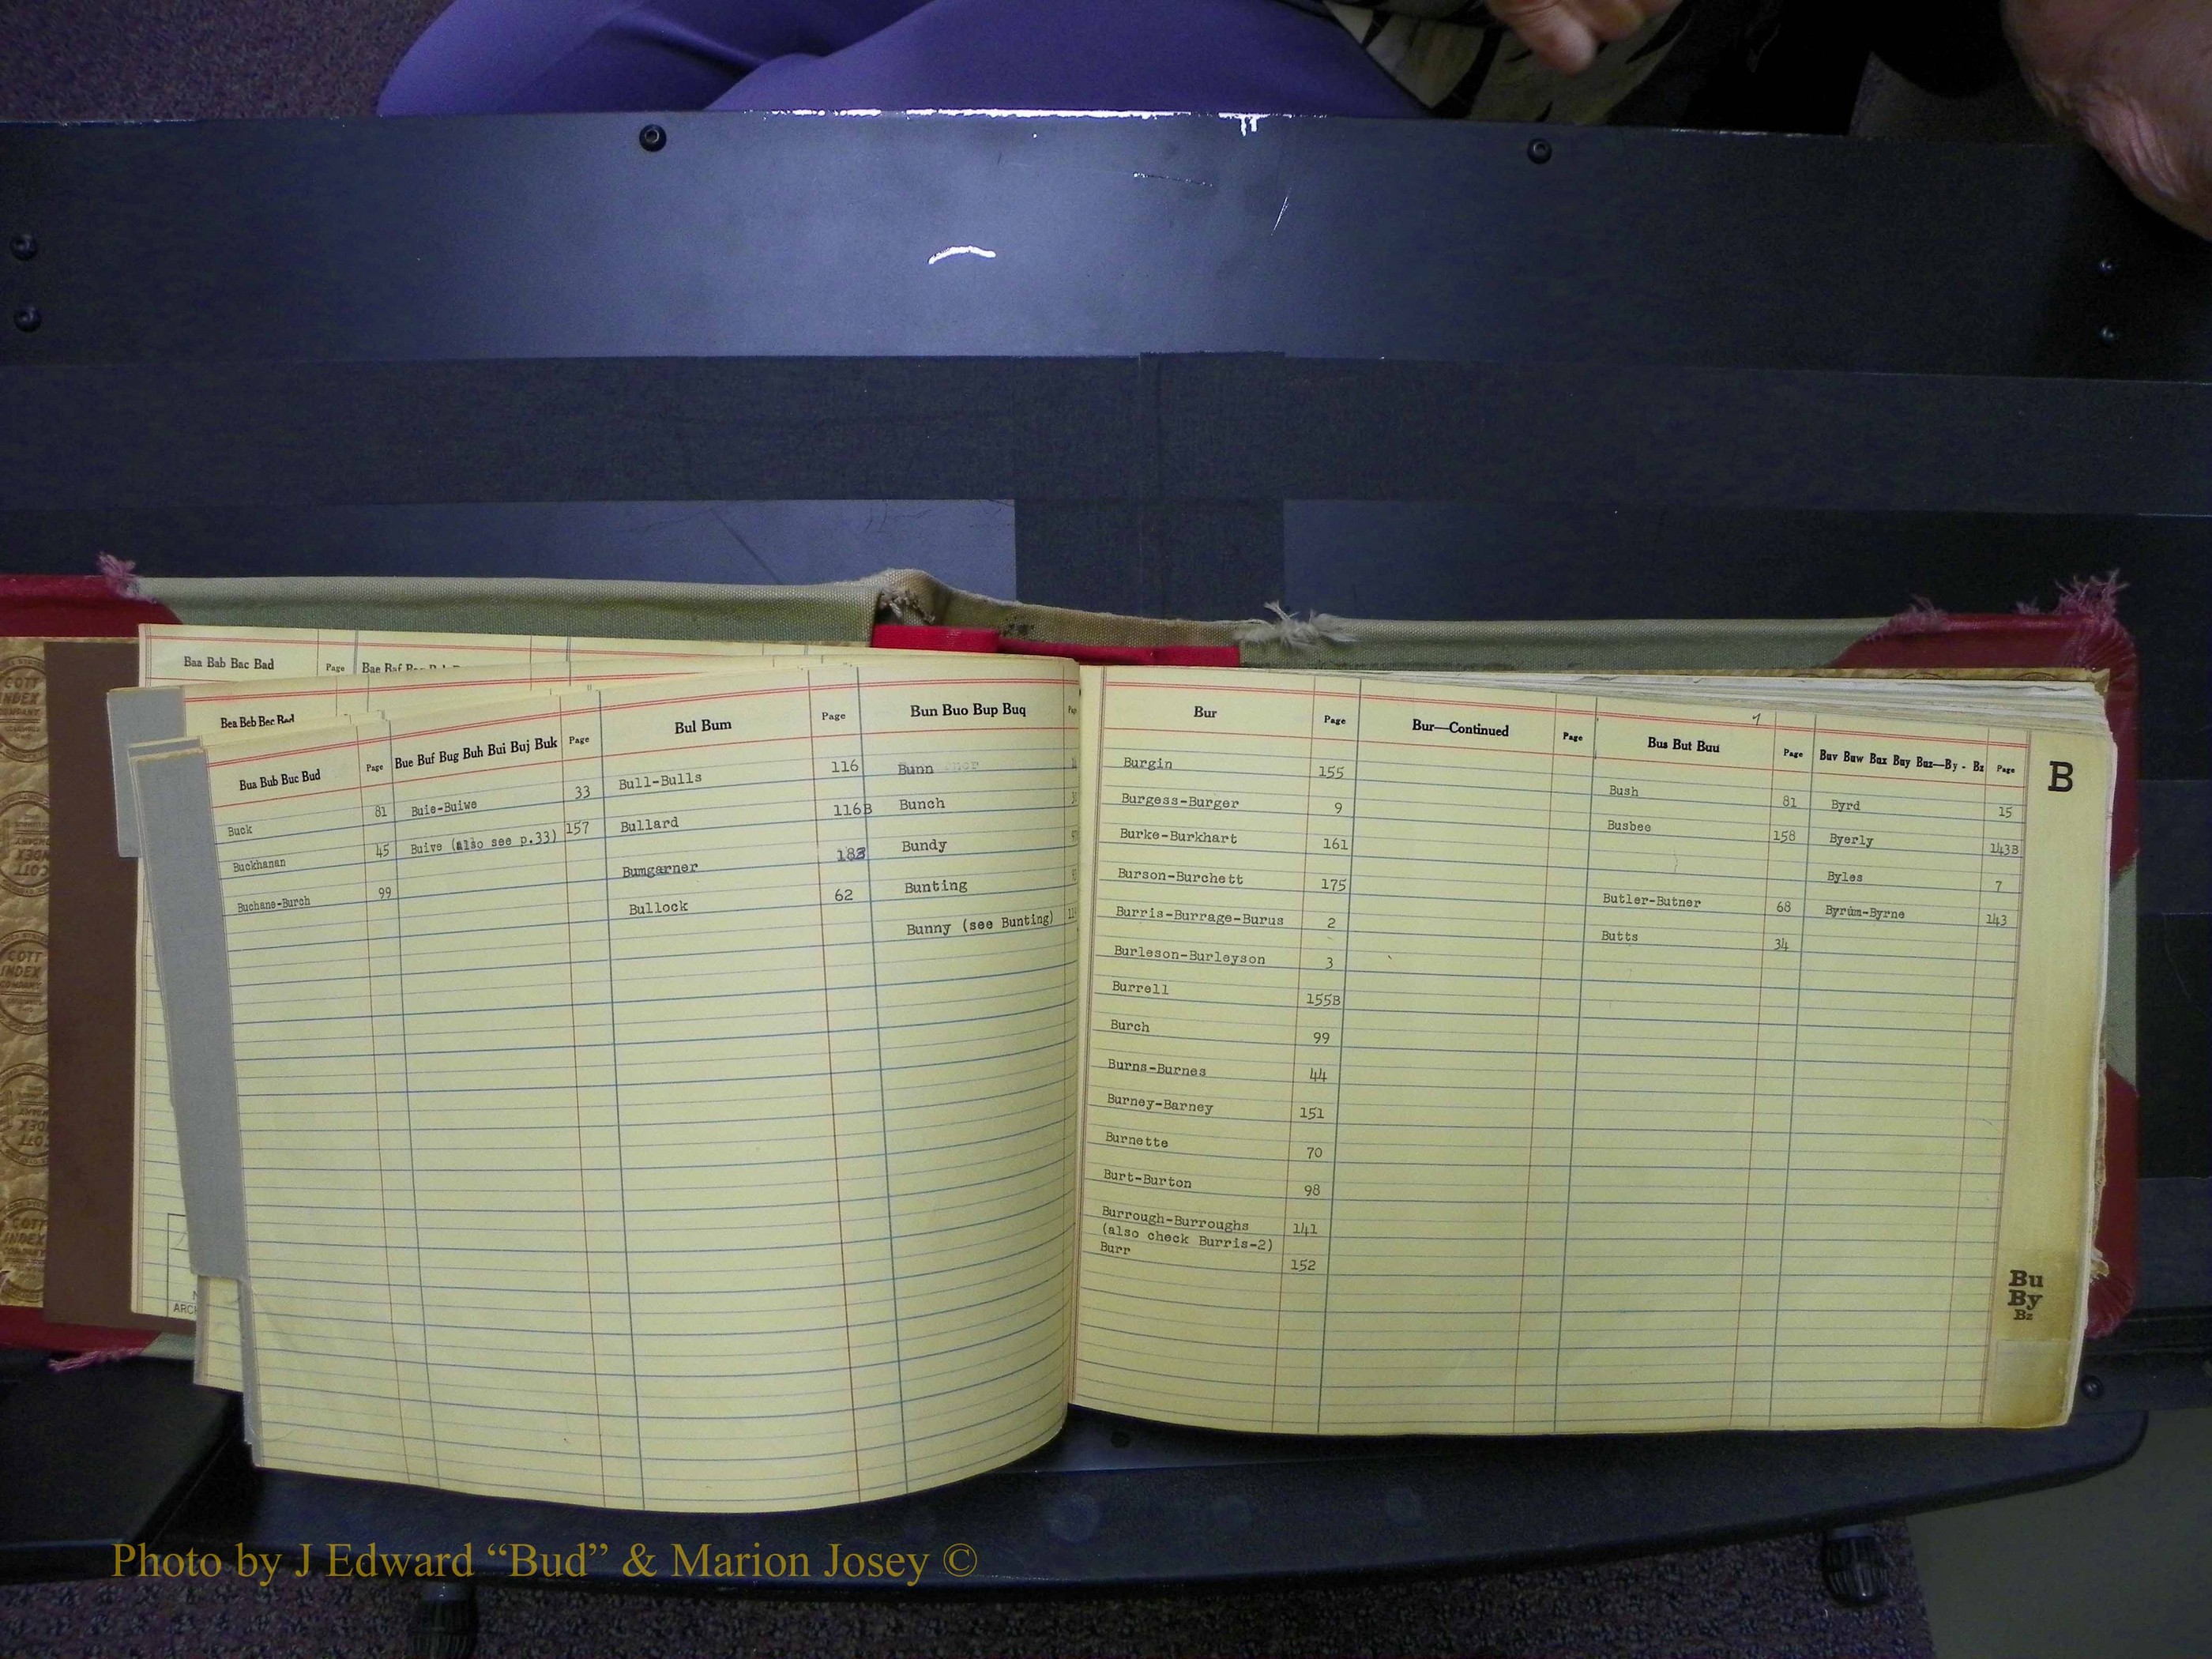 Baa Bab Bac Bad Page
Bea Beb Bec Bed
Bua Bub Buc Bud Page Bue Buf Bug Buh Bui Buj Buk Page Bul Bum Page Bun Buo Bup Buq
Buck 81 Buie-Buiwe 33 Bull-Bulls 116 Bunn
Buckhanan 45 Buive (also see p.33) 157 Bullard 116B Bunch
Buchane-Burch 99 Bumgarner 183 Bundy
Bullock 62 Bunting
Bunny (see Bunting)
Bur Page Bur—Continued Page Bus But Buu Page Buv Buw Bux Buy Buz—By - Bz Page
Burgin 155 Bush 81 Byrd 15
Burgess-Burger 9 Busbee 158 Byerly 143B
Burke-Burkhart 161 Byles 7
Burson-Burchett 175 Butler-Butner 68 Byrum-Byrne 143
Burris-Burrage-Burus 2 Butts 34
Burleson-Burleyson 3
Burrell 155B
Burch 99
Burns-Burnes 44
Burney-Barney 151
Burnette 70
Burt-Burton 98
Burrough-Burroughs 141
(also check Burris-2)
Burr 152
B
Bu
By
Bz
COTT
INDEX
COMPANY
Photo by J Edward “Bud” & Marion Josey ©